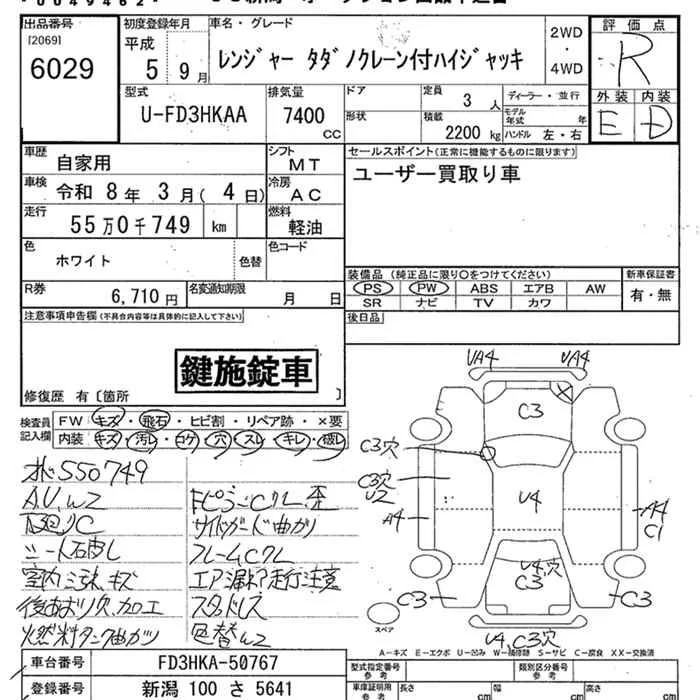 出品番号
[2069]
6029
初度登録年月
平成
5 9月
車名・グレード
レンジャー タダノクレーン付ハイジャッキ
2WD
・
4WD
評価点
R
外装 内装
E D
型式
U-FD3HKAA
排気量
7400
CC
ドア
形状
定員
3人
積載
2200kg
ディーラー・並行
モデル年式 年
ハンドル 左・右
車歴
自家用
シフト
MT
車検
令和 8年 3月( 4日)
冷房
AC
走行
55万0千749 km
燃料
軽油
色
ホワイト
色替
色コード
R券
6,710円
名変通知期限
月 日
セールスポイント(正常に機能するものに限ります)
ユーザー買取り車
装備品 (純正品に限り○をつけてください)
PS PW ABS エアB AW
SR ナビ TV カワ
新車保証書
有・無
後日品
注意事項申告欄(不具合内容等は具体的に記入して下さい)
鍵施錠車
修復歴 有〔箇所 〕
検査員
記入欄
FW キズ・飛石・ヒビ割・リペア跡・×要
内装 キズ・汚レ・コゲ・穴・スレ・キレ・破レ
550749
A.U.W2
シート破レ
室内 キズ
加工
燃料タンク曲ガリ
サイドガード曲ガリ
フレームC
エア漏レ 走行注意
スタッドレス
色替W2
UA4 UA4
C3
C3穴
C3穴
U2
A4
U4
A4
C1
U4.穴
C3
C3 C3
U4.C3穴
スペア
A－キズ E－エクボ U－凹み W－補修跡 S－サビ C－腐食 XX－交換済
車台番号
FD3HKA-50767
登録番号
新潟 100 さ 5641
型式指定番号
参考
類別区分番号
参考
車庫証明用
参考
長さ cm
幅 cm
高さ cm